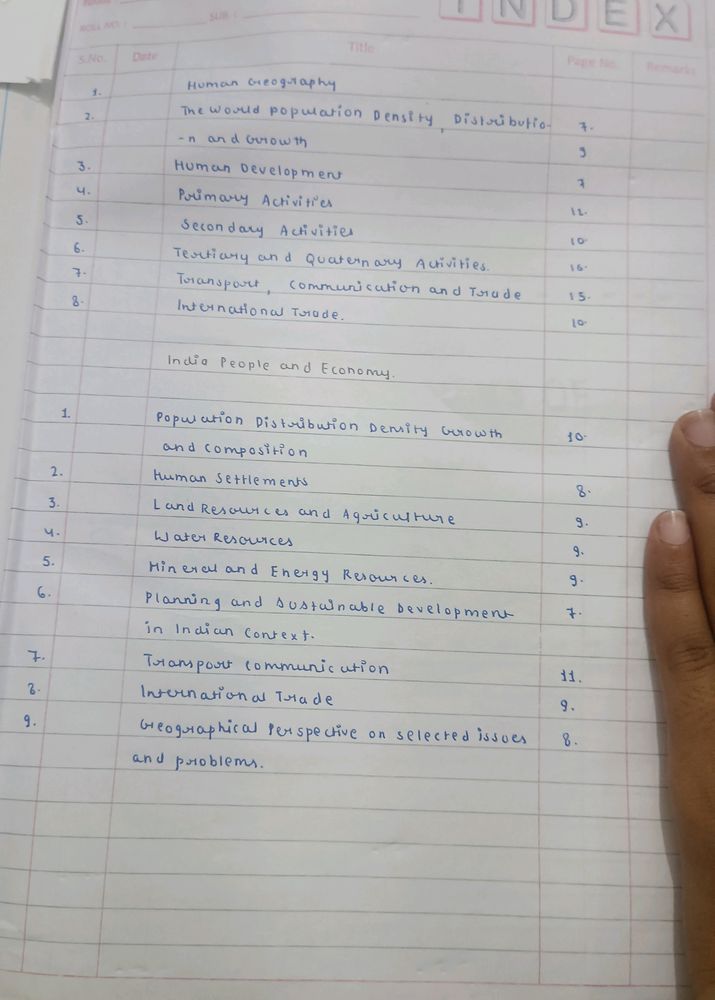 INDEX
ROLL NO. : SUB :
S.No. Date Title Page No. Remarks
1. Human Geography
2. The World Population Density, Distributio- 7.
-n and Growth 9
3. Human Development 7
4. Primary Activities 12.
5. Secondary Activities 10
6. Tertiary and Quaternary Activities. 16.
7. Transport, Communication and Trade 15.
8. International Trade. 10.
India People and Economy.
1. Population Distribution Density Growth 10.
and Composition
2. Human Settlements 8.
3. Land Resources and Agriculture 9.
4. Water Resources 9.
5. Mineral and Energy Resources. 9.
6. Planning and Sustainable Development 7.
in Indian Context.
7. Transport Communication 11.
8. International Trade 9.
9. Geographical Perspective on selected issues 8.
and problems.